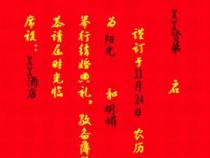 XX贤弟 启
谨订于11月24日 农历
为 阳光 和 明媚
举行结婚典礼。敬备薄
恭请届时光临
席设：XX酒店